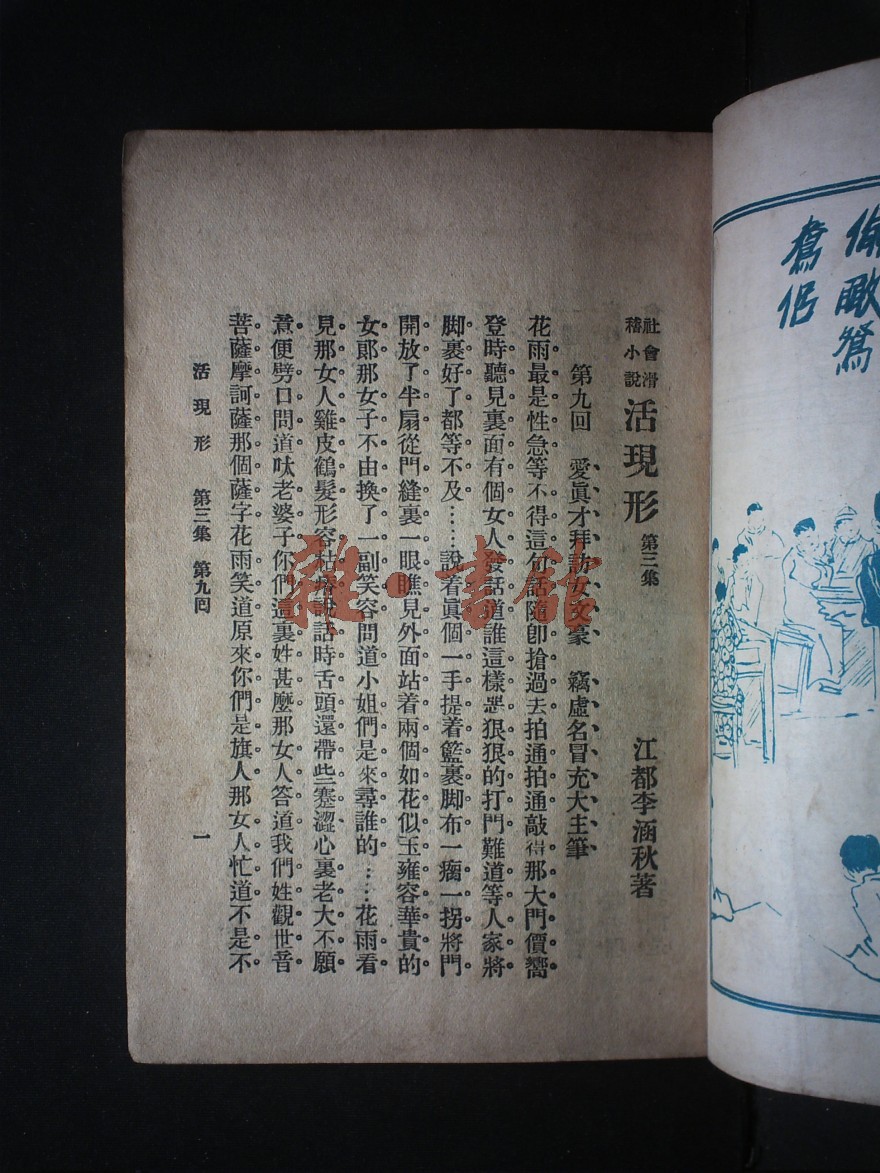 偷瞰鴛
鴦侶
社會滑
稽小說
活現形 第三集
江都李涵秋著
第九回 愛眞才拜訪女文豪 竊虛名冒充大主筆
花雨最是性急等不得這句話隨卽搶過去拍通拍通敲得那大門價嚮
登時聽見裏面有個女人發話道誰這樣惡狠狠的打門難道等人家將
脚裹好了都等不及……說着眞個一手提着籃裹脚布一瘸一拐將門
開放了半扇從門縫裏一眼瞧見外面站着兩個如花似玉雍容華貴的
女郞那女子不由換了一副笑容問道小姐們是來尋誰的……花雨看
見那女人雞皮鶴髮形容枯瘠說話時舌頭還帶些蹇澀心裏老大不願
意便劈口問道呔老婆子你們這裏姓甚麼那女人答道我們姓觀世音
菩薩摩訶薩那個薩字花雨笑道原來你們是旗人那女人忙道不是不
活現形 第三集 第九囘
一
雜·書館